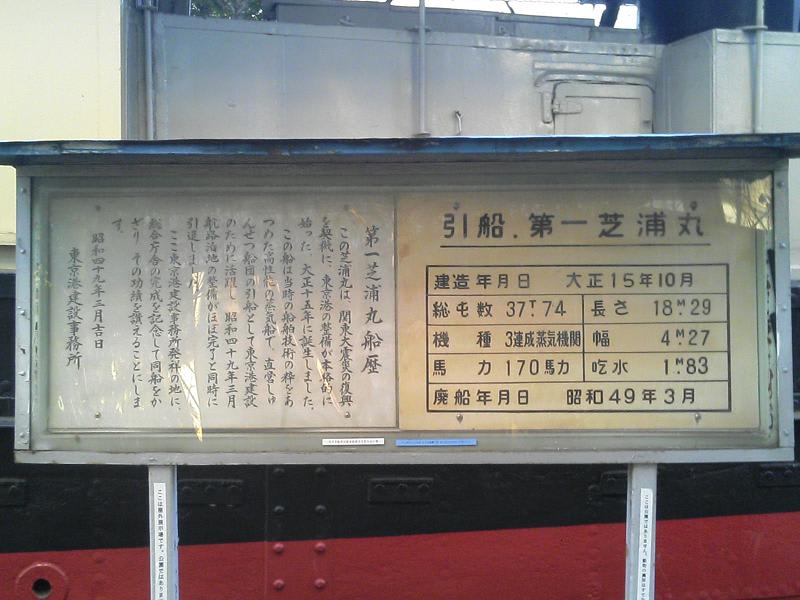 第一芝浦丸船歴
この芝浦丸は、関東大震災の復興
を契機に、東京港の整備が本格的に
始った、大正十五年に誕生しました。
この船は当時の船舶技術の粋をあ
つめた高性能の蒸気船で、直営しゅ
んせつ船団の引船として東京港建設
のために活躍し、昭和四十九年三月
航路泊地の整備がほぼ完了と同時に
引退しました。
ここ東京港建設事務所発祥の地に、
総合庁舎の完成を記念して同船をか
ざり、その功績を讃えることにしま
す。
昭和四十九年三月吉日
東京港建設事務所
引船.第一芝浦丸
建造年月日 大正15年10月
総屯数 37T74 長さ 18M29
機種 3連成蒸気機関 幅 4M27
馬力 170馬力 吃水 1M83
廃船年月日 昭和49年3月
ここは屋外展示場です。公園ではありま
ここは公園ではありません。